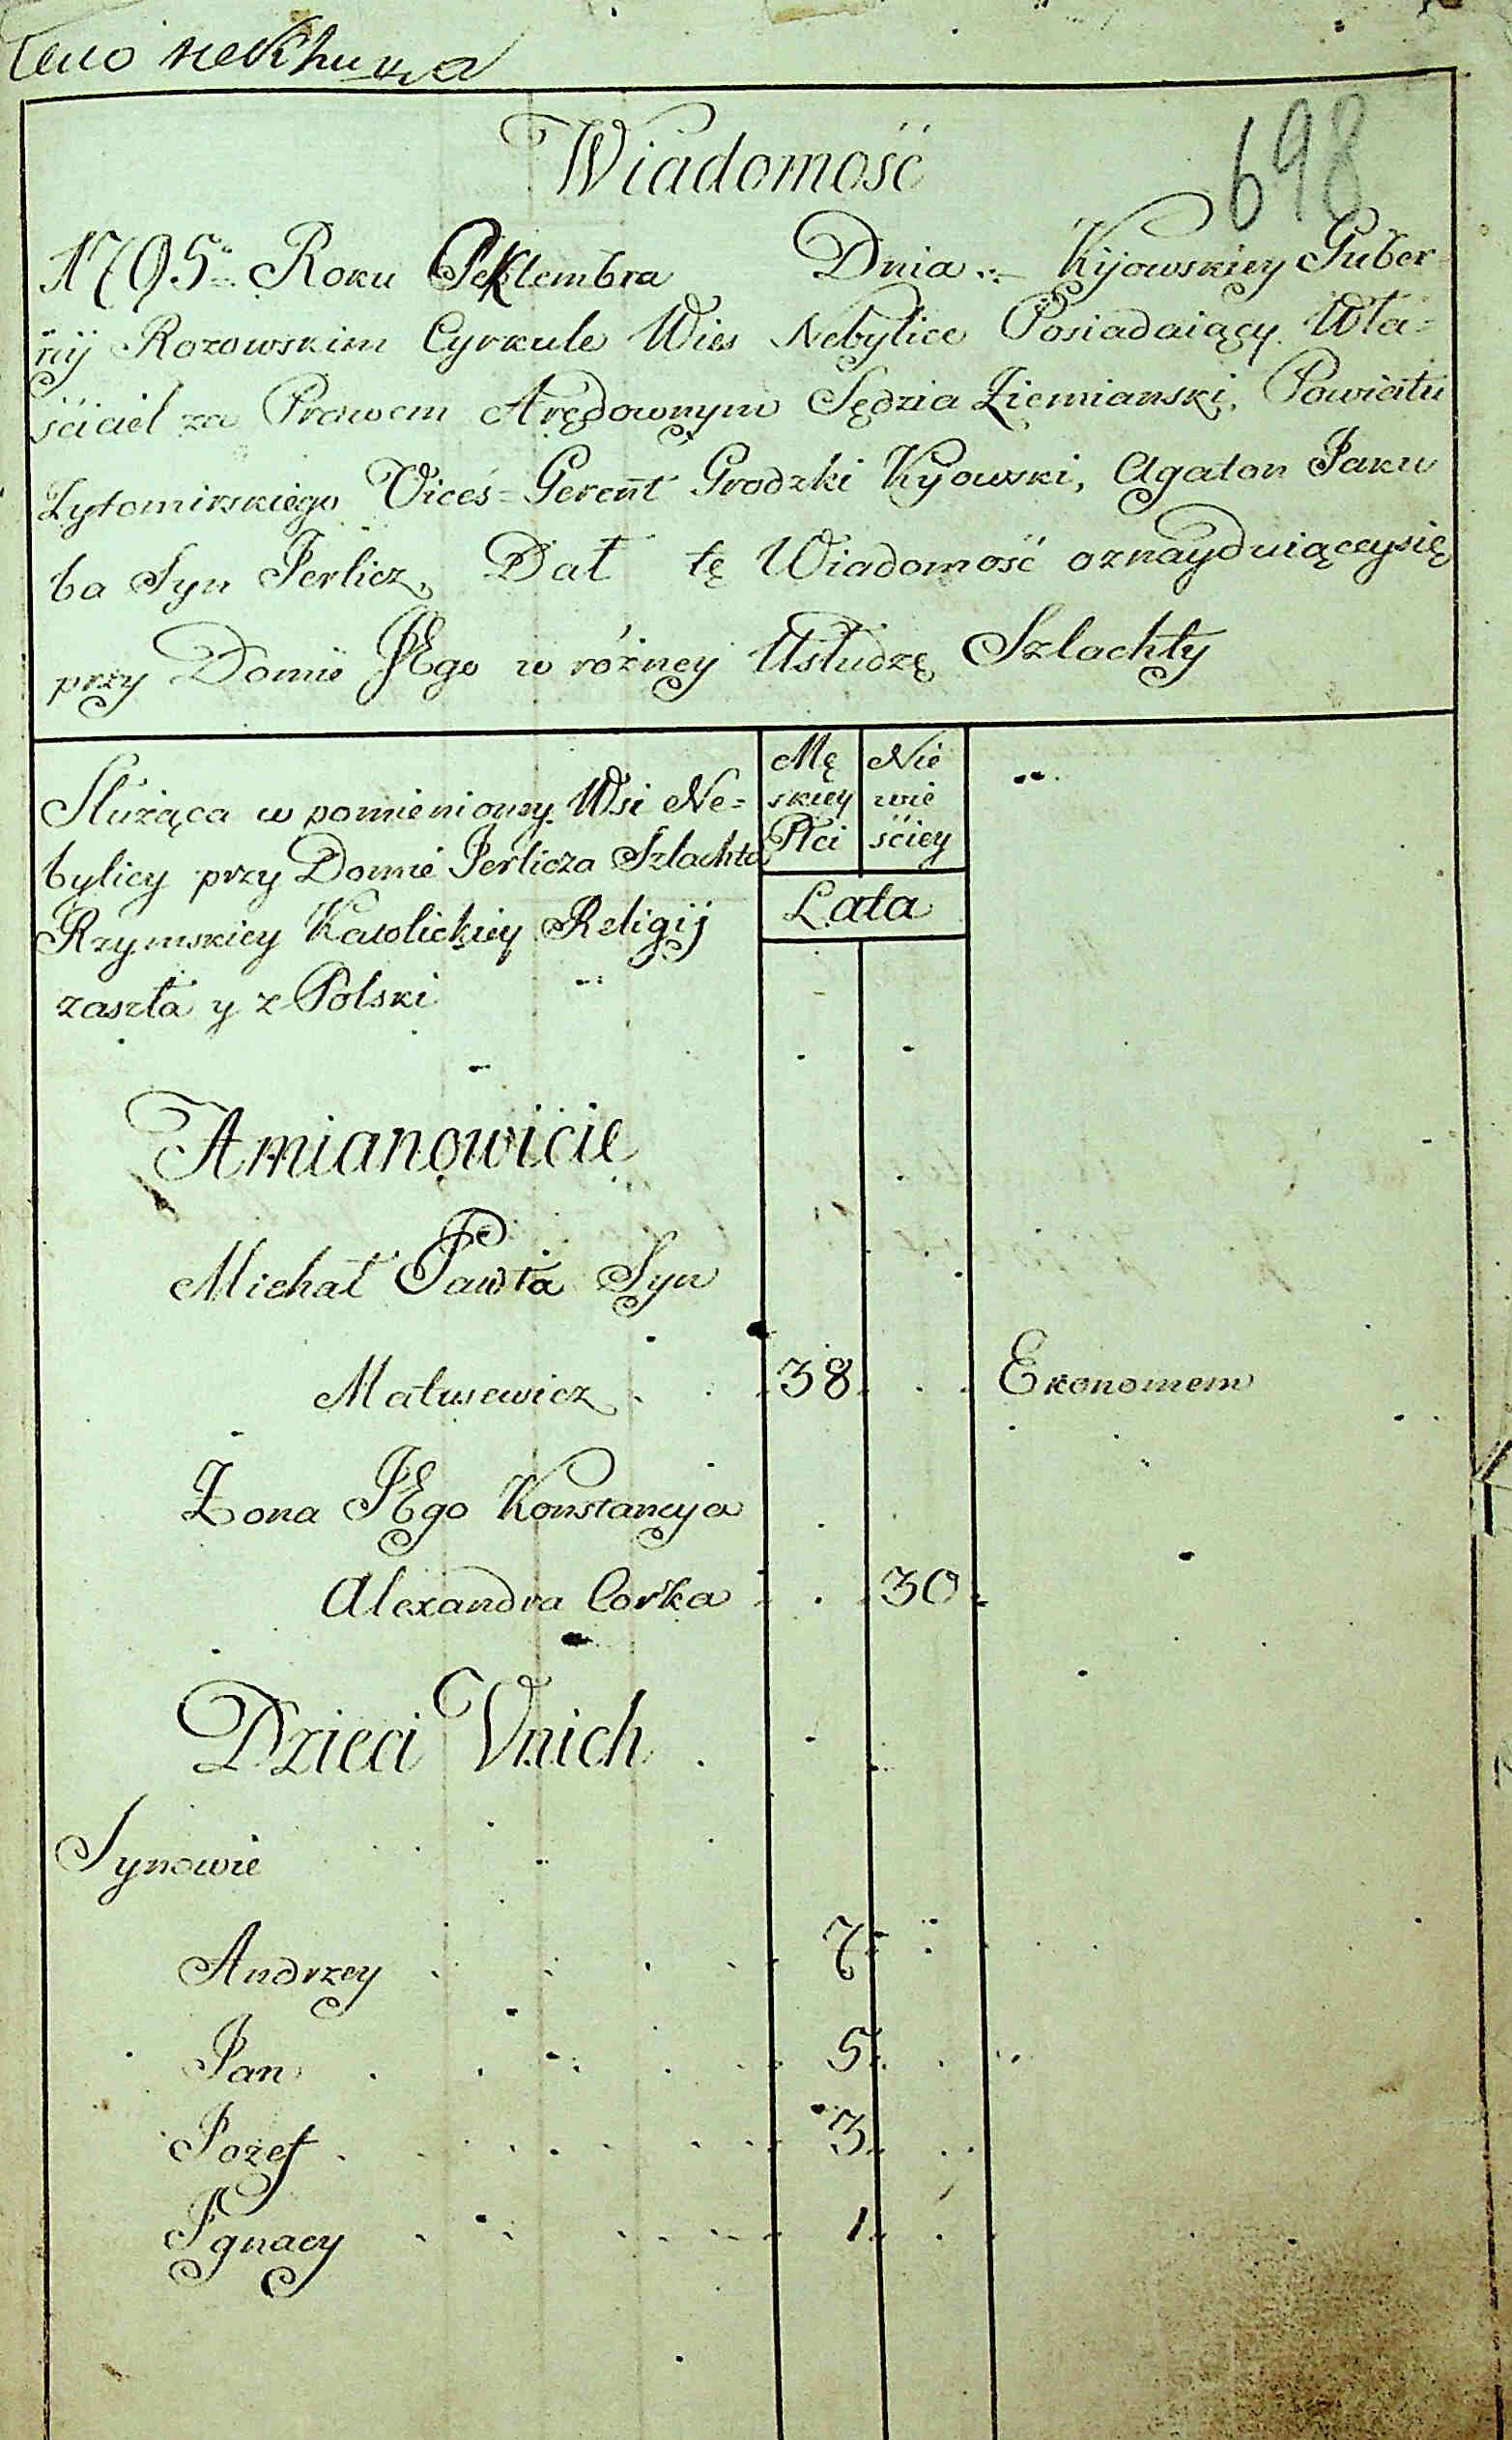 698
Wiadomość
1795 Roku Septembra Dnia Kijowskiey Guber
nij Rozowskim Cyrkule Wies Nebylice Posiadaiący Wła=
ściciel za Prawem Arędownym Sędzia Ziemianski, Powiatu
Zytomirskiego Vices=Gerent Grodzki Kyowski, Agaton Jaku
ba Syn Jerlicz, Dał tę Wiadomość oznayduiąceysię
przy Domie JEgo w rózney Usłudzę Szlachty
Słuząca w pomienioney Wsi Ne=
bylicy przy Domie Jerlicza Szlachta
Rzymskiey Katolickiey Religij
zaszła y z Polski
Mę
skiey
Płci
Nie
wie
ściey
Lata
Amianowicie
Michał Pawła Syn
Matusewicz 38 Ekonomem
Zona JEgo Konstancyja
Alexandra Corka 30
Dzieci Vnich
Synowie
Andrzey 7
Jan 5
Jozef 3
Jgnacy 1